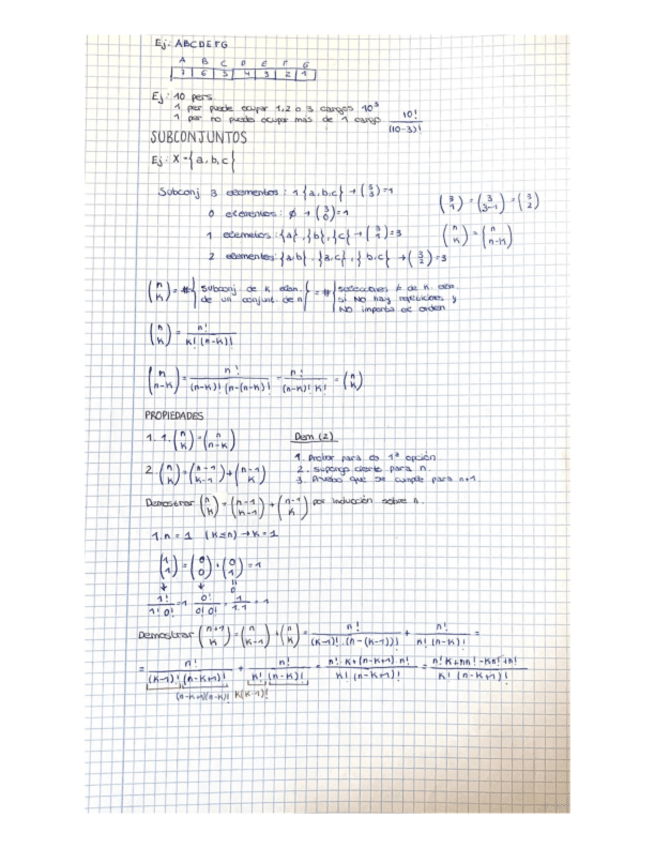 Ej: ABCDEFG
A B C D E F G
7 6 5 4 3 2 1
Ej: 10 pers
1 per puede ocupar 1,2 o 3 cargos 10³
1 per no puede ocupar más de 1 cargo 10!/(10-3)!
SUBCONJUNTOS
Ej: X={a,b,c}
Subconj 3 elementos: 1 {a,b,c} → (3 3)=1
0 elementos: ∅ → (3 0)=1
1 elementos: {a},{b},{c} → (3 1)=3
2 elementos: {a,b},{a,c},{b,c} → (3 2)=3
(3 1)=(3 3-1)=(3 2)
(n k)=(n n-k)
(n k)=#{subconj de k elem. de un conjunt. de n}=#{selecciones k de n elem si NO hay repeticiones y NO importa el orden
(n k)=n!/k!(n-k)!
(n n-k)=n!/(n-k)!(n-(n-k))!=n!/(n-k)!k!=(n k)
PROPIEDADES
1. 1.(n k)=(n n-k)
2.(n k)=(n-1 k-1)+(n-1 k)
Dem (2)
1. Probar para la 1ª opción
2. Supongo cierto para n
3. Pruebo que se cumple para n+1
Demostrar (n k)=(n-1 k-1)+(n-1 k) por inducción sobre n.
1. n=1 (k≤n) → k=1
(1 1)=(0 0)+(0 1)=1
↓ ↓ = 0
1!/1!0!=1 0!/0!0!=1/1.1=1
Demostrar (n+1 k)=(n k-1)+(n k)=n!/(k-1)!.(n-(k-1))!+n!/k!(n-k)!=
=n!/(k-1)!(n-k+1)!+n!/k!(n-k)!=n!k+(n-k+1).n!/k!(n-k+1)!=n!k+nn!-kn!+n!/k!(n-k+1)!
(n-k+1)(n-k)! k(k-1)!